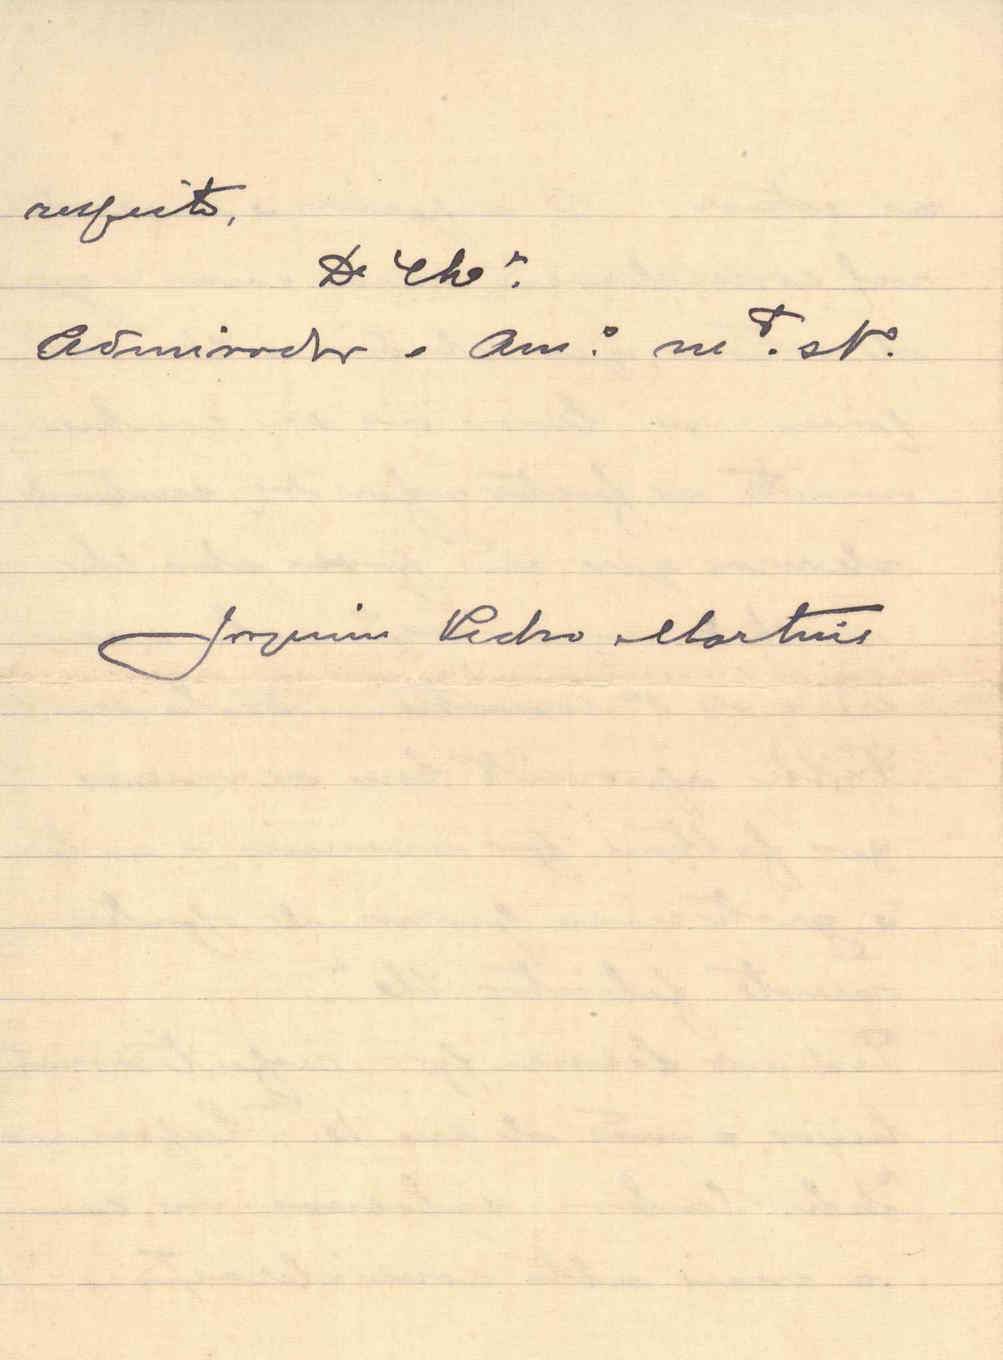 respeito,
De V. Ex.ª
Admirador e Am.º m.to att.º
Joaquim Pedro Martins